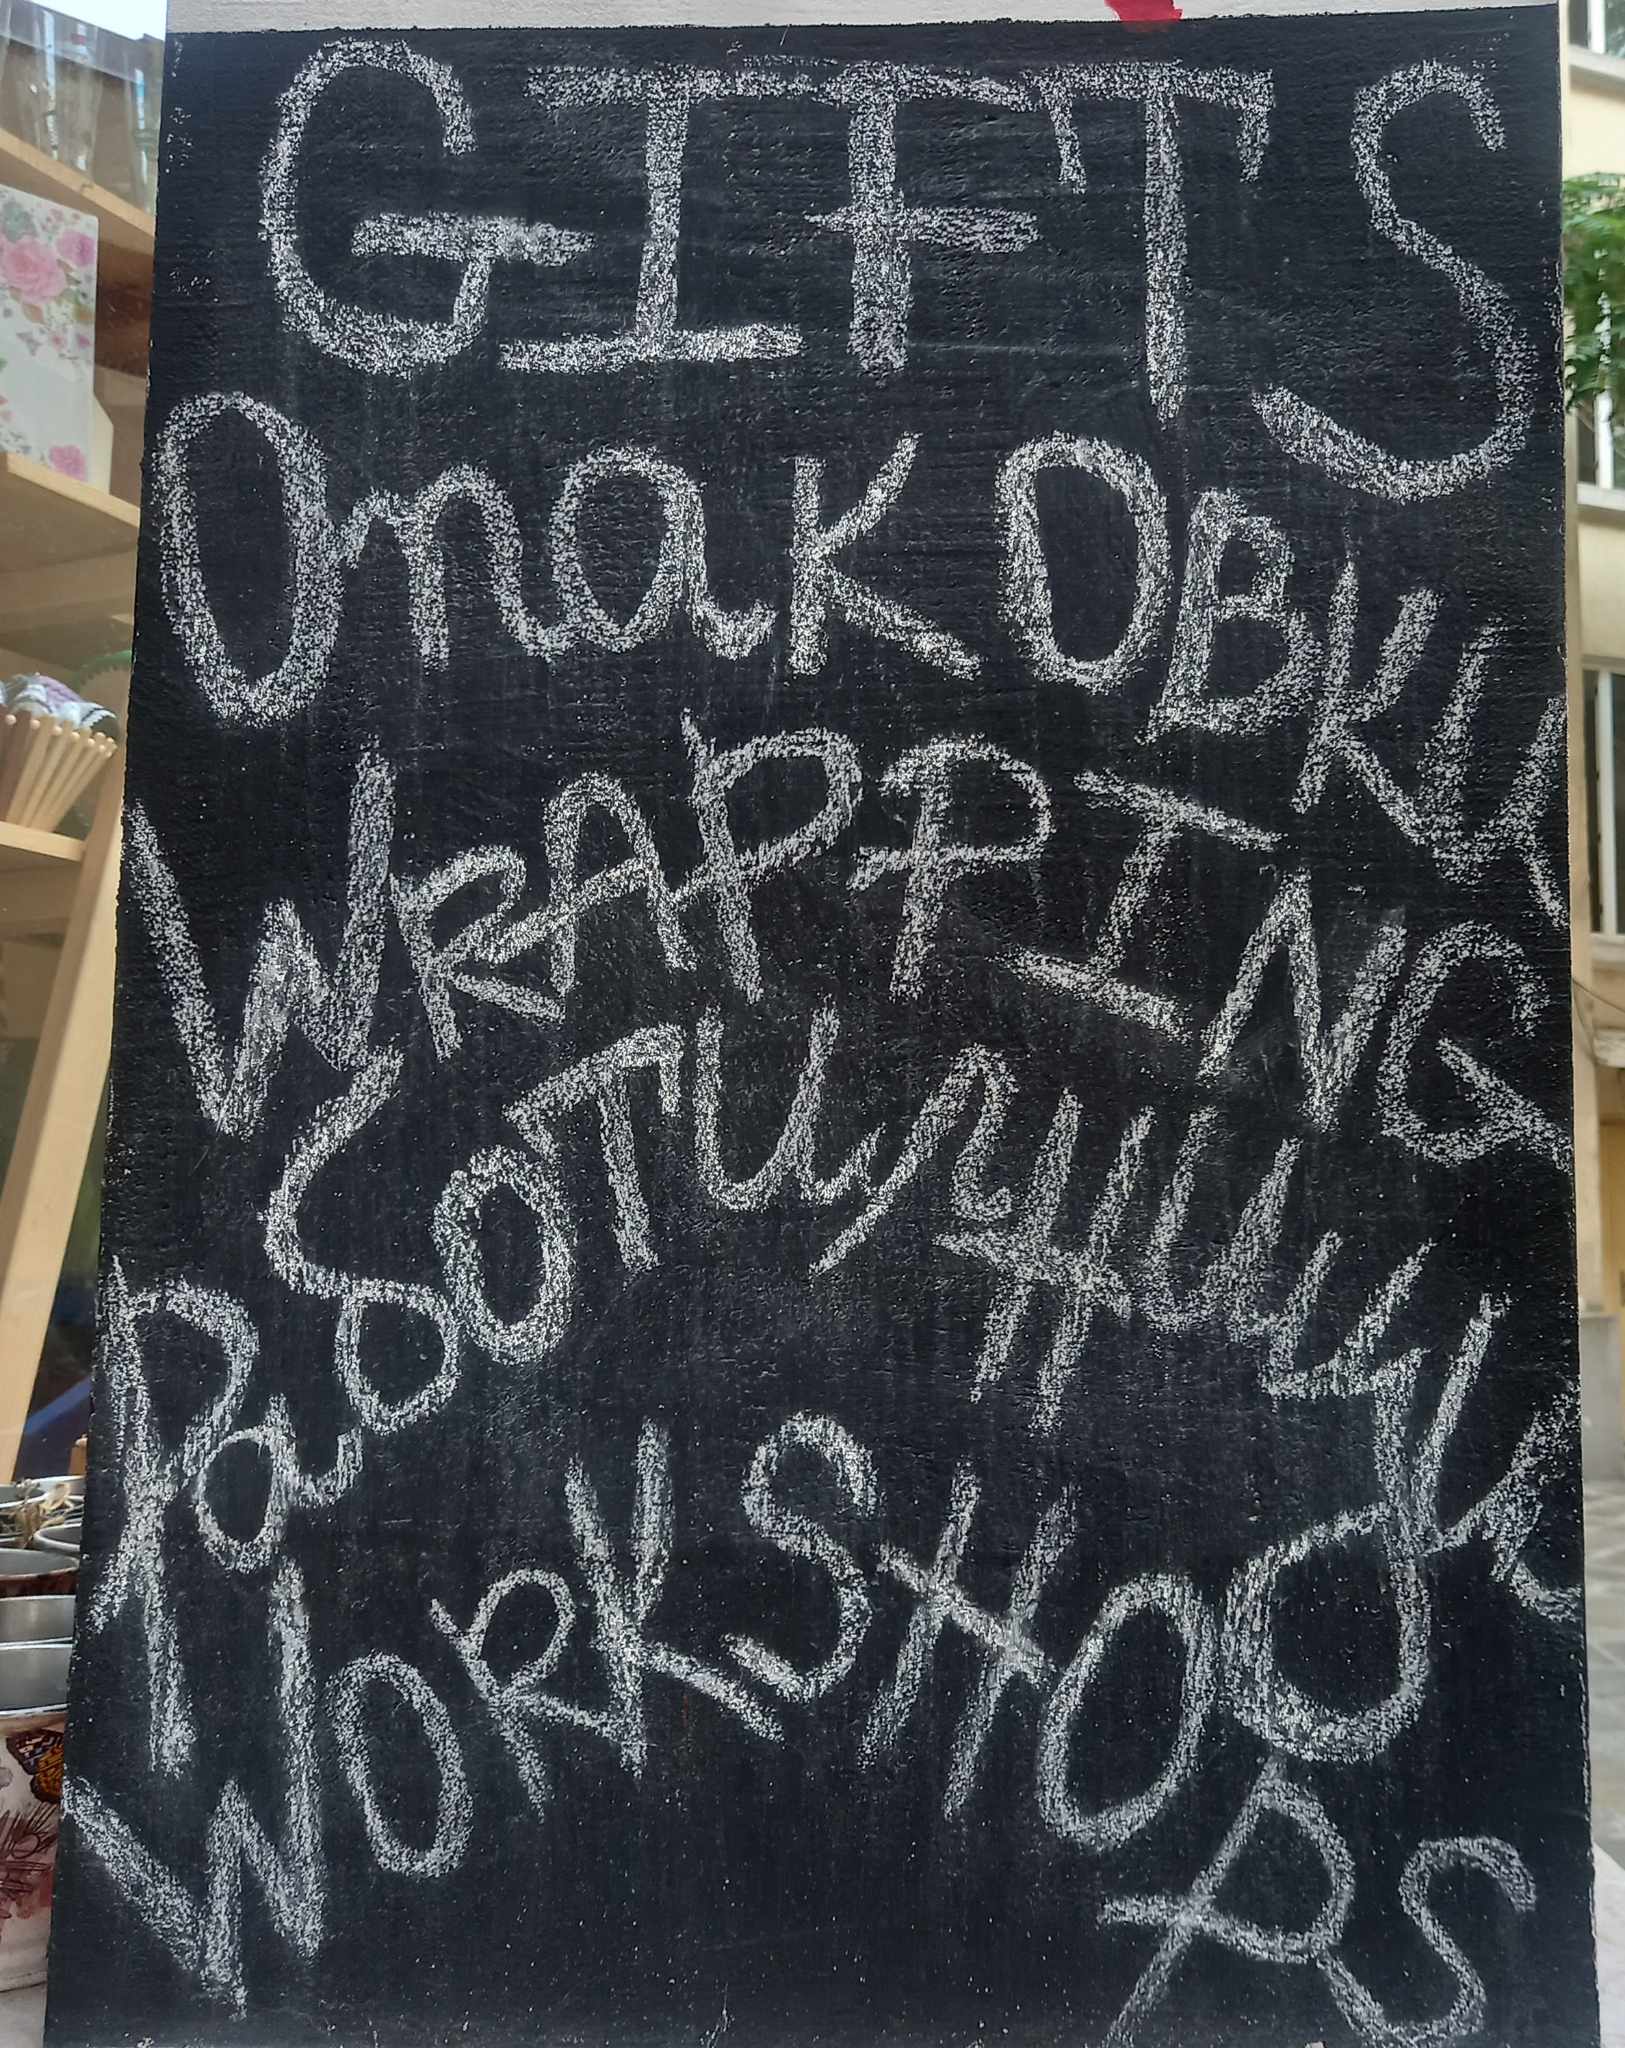 GIFTS
Опаковки
WRAPPING
Работилници
WORKSHOPS